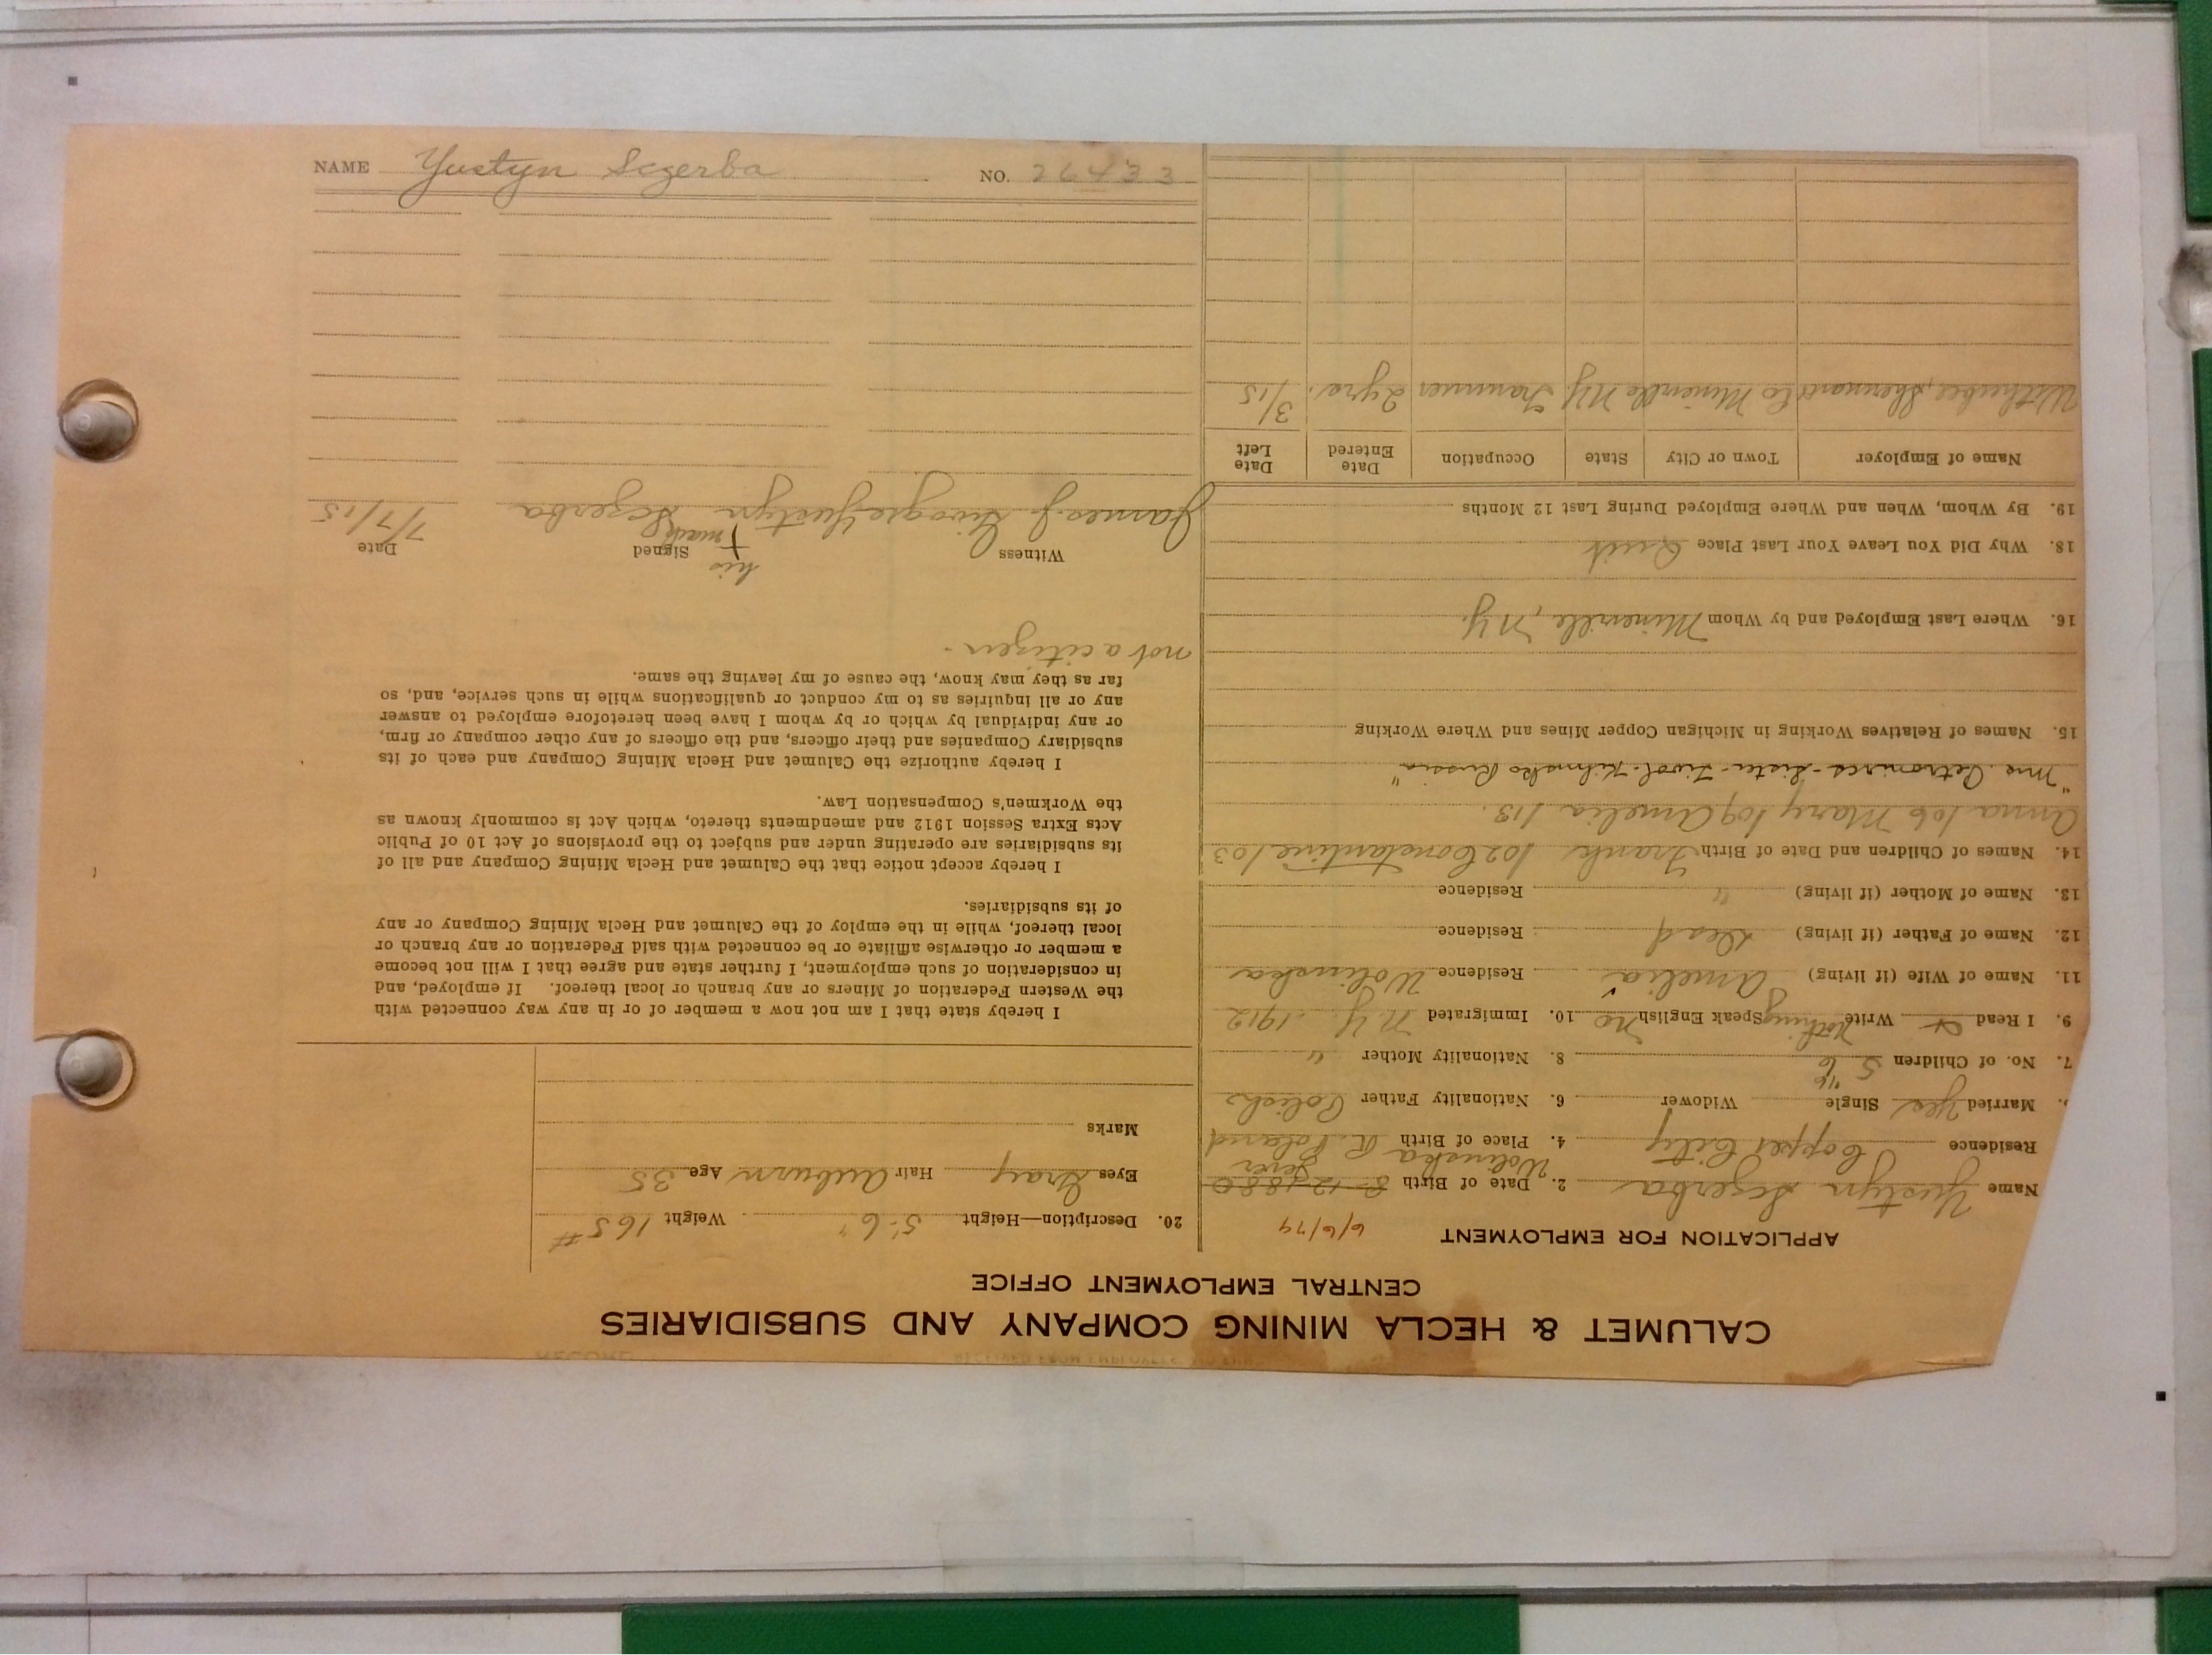 CALUMET & HECLA MINING COMPANY AND SUBSIDIARIES
CENTRAL EMPLOYMENT OFFICE
APPLICATION FOR EMPLOYMENT 6/6/79
Name Yustyn Sczerba 2. Date of Birth 8-12-1880
Residence Copper City 4. Place of Birth Wolinska R. Poland
Married Yes Single Widower 6. Nationality Father Polish
7. No. of Children 5 6 8. Nationality Mother "
9. I Read Write Nothing Speak English no 10. Immigrated N.Y. 1912
11. Name of Wife (if living) Amelia Residence Wolinska
12. Name of Father (if living) Dead Residence
13. Name of Mother (if living) " Residence
14. Names of Children and Date of Birth Frank 102 Constantine 103
Anna 106 Mary 109 Amelia 113.
15. Names of Relatives Working in Michigan Copper Mines and Where Working
16. Where Last Employed and by Whom Mineville, N.Y.
18. Why Did You Leave Your Last Place Quit
19. By Whom, When and Where Employed During Last 12 Months
Name of Employer Town or City State Occupation Date Entered Date Left
Witherbee, Sherman & Co Mineville NY Trammer 2 yrs. 3/15
20. Description—Height 5'6" Weight 165#
Eyes Gray Hair Auburn Age 35
Marks
I hereby state that I am not now a member of or in any way connected with
the Western Federation of Miners or any branch or local thereof. If employed, and
in consideration of such employment, I further state and agree that I will not become
a member or otherwise affiliate or be connected with said Federation or any branch or
local thereof, while in the employ of the Calumet and Hecla Mining Company or any
of its subsidiaries.
I hereby accept notice that the Calumet and Hecla Mining Company and all of
its subsidiaries are operating under and subject to the provisions of Act 10 of Public
Acts Extra Session 1912 and amendments thereto, which Act is commonly known as
the Workmen's Compensation Law.
I hereby authorize the Calumet and Hecla Mining Company and each of its
subsidiary Companies and their officers, and the officers of any other company or firm,
or any individual by which or by whom I have been heretofore employed to answer
any or all inquiries as to my conduct or qualifications while in such service, and, so
far as they may know, the cause of my leaving the same.
not a citizen -
his
Witness + mark Signed Date
James J. Yustyn Sczerba 7/7/15
NAME Yustyn Sczerba NO. 26433